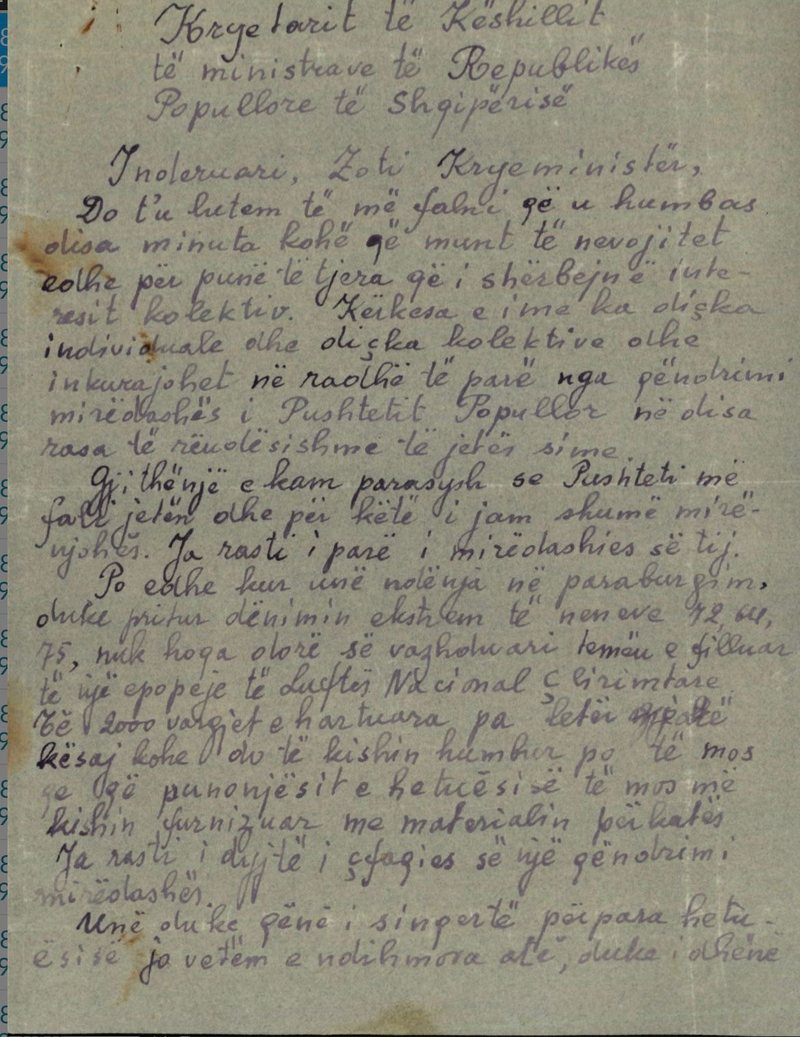 Kryetarit të Këshillit
të ministrave të Republikës
Popullore të Shqipërisë
Inderuari, Zoti Kryeministër,
Do t'u lutem të më falni që u humbas
disa minuta kohë që munt të nevojitet
edhe për punë të tjera që i shërbejnë inte-
resit kolektiv. Kërkesa e ime ka diçka
individuale dhe diçka kolektive dhe
inkurajohet në radhë të parë nga qëndrimi
mirëdashës i Pushtetit Popullor në disa
rasa të rëndësishme të jetës sime.
Gjithënjë e kam parasysh se Pushteti më
fali jetën dhe për këtë i jam shumë mirë-
njohës. Ja rasti i parë i mirëdashies së tij.
Po edhe kur unë ndënja në paraburgim,
duke pritur dënimin ekstrem të neneve 72, 64,
75, nuk hoqa dorë së vazhduari temën e filluar
të një epopeje të Luftës Nacional Çlirimtare.
Të 2000 vargjet e hartuara pa letër gjatë
kësaj kohe do të kishin humbur po të mos
qe që punonjësit e hetuësisë të mos më
kishin furnizuar me materialin përkatës
Ja rasti i dytë i çfaqies së një qëndrimi
mirëdashës.
Unë duke qënë i singertë përpara hetu-
ësisë jo vetëm e ndihmova atë, duke i dhënë